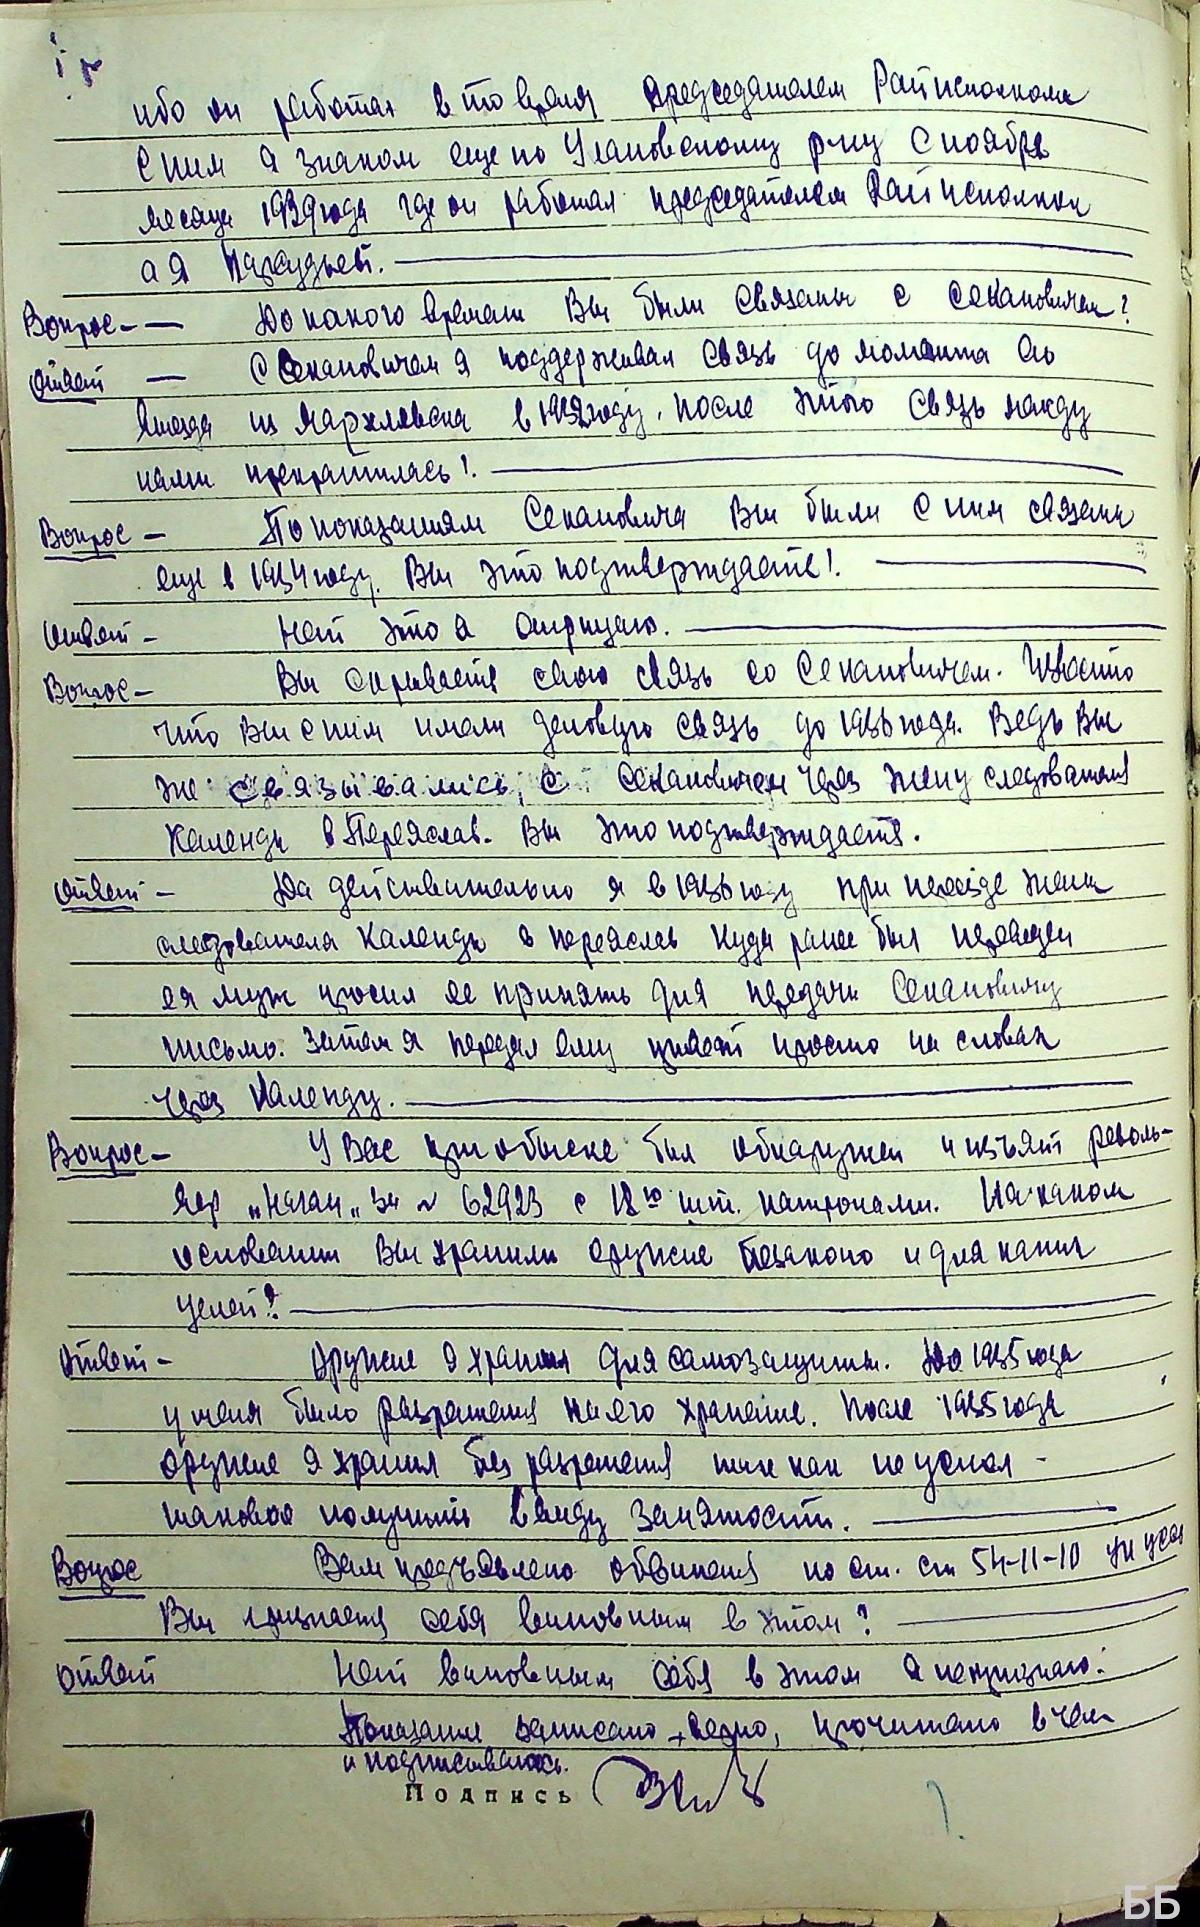 ибо он работал в то время председателем Райисполкома
С ним я знаком еще по Улановскому р-ну С ноября
месяца 1929 года где он работал председателем Райисполком
а я Нарсудьей.
Вопрос — До какого времени Вы были связаны с Секановичем?
Ответ — С Секановичем я поддерживал связь до момента от
ъезда из Мархлевска в 1932 году. После этого связь между
нами прекратилась!.
Вопрос — По показаниям Секановича Вы были с ним связаны
еще в 1934 году. Вы это подтверждаете!.
Ответ — Нет это я отрицаю.
Вопрос — Вы скрываете свою связь со Секановичем. Известно
что Вы с ним имели деловую связь до 1936 года. Ведь Вы
же связывались с Секановичем через жену следователя
Календы в Переяслав. Вы это подтверждаете.
Ответ — Да действительно я в 1936 году при переезде жены
следователя Календы в Переяслав куда ранее был переведен
ея муж просил ее принять для передачи Секановичу
письмо. Затем я передал ему привет просто на словах
через Календу.
Вопрос — У Вас при обыске был обнаружен и изъят револь-
вер „Наган„ за № 62923 с 18ю шт. патронами. На каком
основании Вы хранили оружие безаконо и для каких
целей?
Ответ — Оружие я хранил для самозащиты. До 1935 года
у меня было разрешения на его хранение. После 1935 года
оружие я хранил без разрешения так как не успел
таковое получить ввиду занятости.
Вопрос Вам предъявлено обвинения по ст. ст 54-11-10 УК УССР
Вы признаете себя виновным в этом?
Ответ Нет виновным себя в этом я не признаю.
Показание записано верно, прочитано в чем
и подписываюсь.
Подпись
ББ